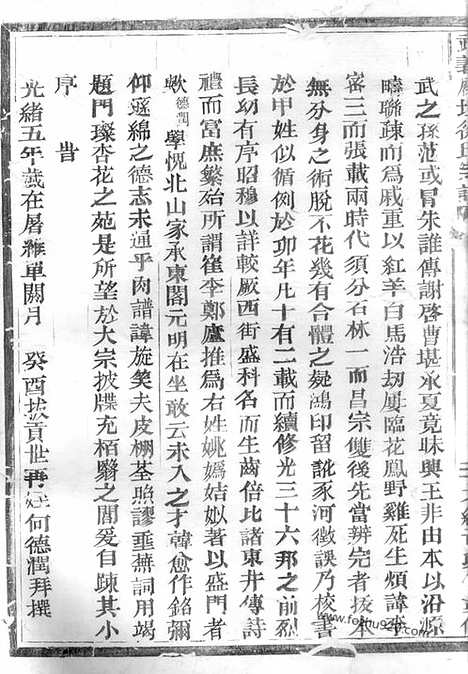 武之孫范或冒朱誰傳謝啓曹堪承夏竟昧興王非由本以沿源
疇聯疎而爲戚重以紅羊白馬浩刼屢臨花鳳野雞死生煩諱李
密三而張載兩時代須分名林一而昌宗雙後先當辨完者拔本
無分身之術脫不花幾有合體之變鴻印留訛豕河徵誤乃校書
於甲姓似循例於卯年凡十有二載而續修光三十六邦之前烈
長幼有序昭穆以詳較厥西街盛科名而生齒倍比諸東井傳詩
禮而富庶繁殆所謂崔李鄭盧推爲右姓姚嬀姞姒著以盛門者
歟德潤學愧北山家承東閣元明在坐敢云未入之才韓愈作銘彌
仰遜綿之德志未通乎肉譜諱旋笑夫皮棚荃照謬垂蕪詞用竭
題門璨杏花之苑是所望於大宗披牒充栢翳之閭爰自竦其小
序 旹
光緒五年歲在屠維單閼月 癸酉拔貢世再姪何德潤拜撰
www.fozhu920.com